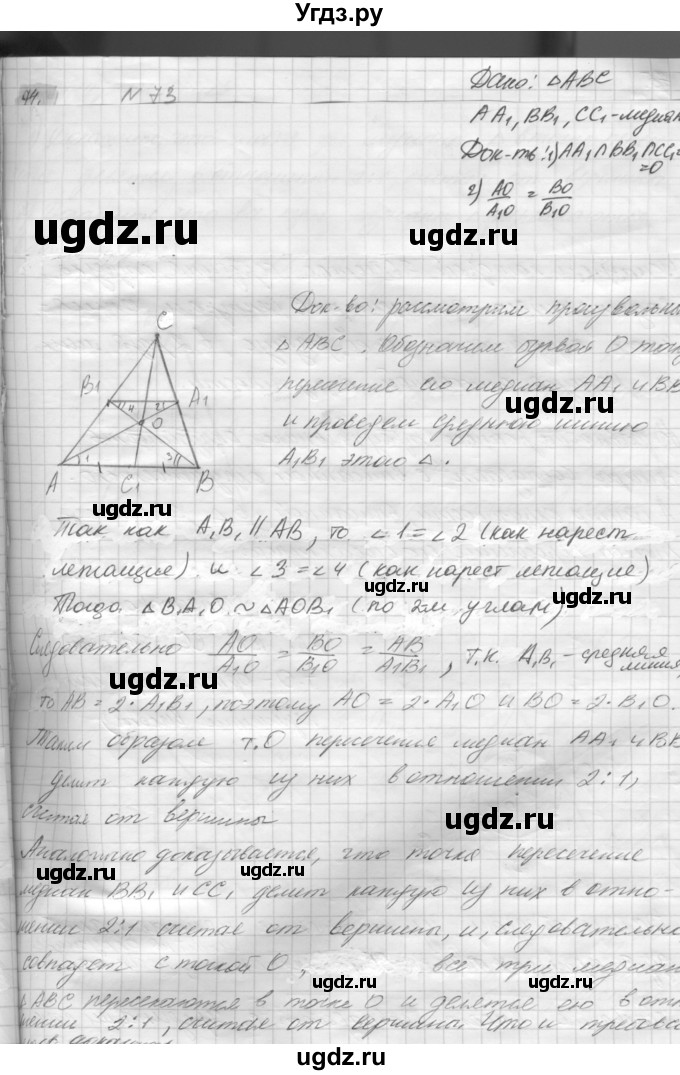 Угдз.ру
94.
N 73
Дано: △ABC
AA₁, BB₁, CC₁ - медиан
Док-ть: 1) AA₁∩BB₁∩CC₁=
=O
2) AO/A₁O = BO/B₁O
ugdz.ru
ugdz.ru
Док-во: рассмотрим произвольны
△ABC. Обозначим буквой O точку
пересечение его медиан AA₁ и BB
ugdz.ru
и проведем среднюю линию
A₁B₁ этого △.
C
B₁ 4 2 A₁
O
A 1 C₁ 3 B
ugdz.ru
Так как A₁B₁ || AB, то ∠1=∠2 (как накрест
лежащие) и ∠3=∠4 (как накрест лежащие)
ugdz.ru
Тогда △B₁A₁O ~ △AOB₁ (по 2м углам)
ugdz.ru
Следовательно AO/A₁O = BO/B₁O = AB/A₁B₁, т.к. A₁B₁ - средняя
линия,
то AB = 2·A₁B₁, поэтому AO = 2·A₁O и BO = 2·B₁O.
ugdz.ru
Таким образом т.O пересечение медиан AA₁ и BB
делит каждую из них в отношении 2:1,
считая от вершины
ugdz.ru
Аналогично доказывается, что точка пересечение
ugdz.ru
медиан BB₁ и CC₁ делит каждую из них в отно-
шении 2:1 считая от вершины, и, следовательно
совпадет с точкой O, все три медиан
ugdz.ru
ugdz.ru
△ABC пересекаются в точке O и делятся ею в отн
шении 2:1, считая от вершины. Что и требова
ugdz.ru